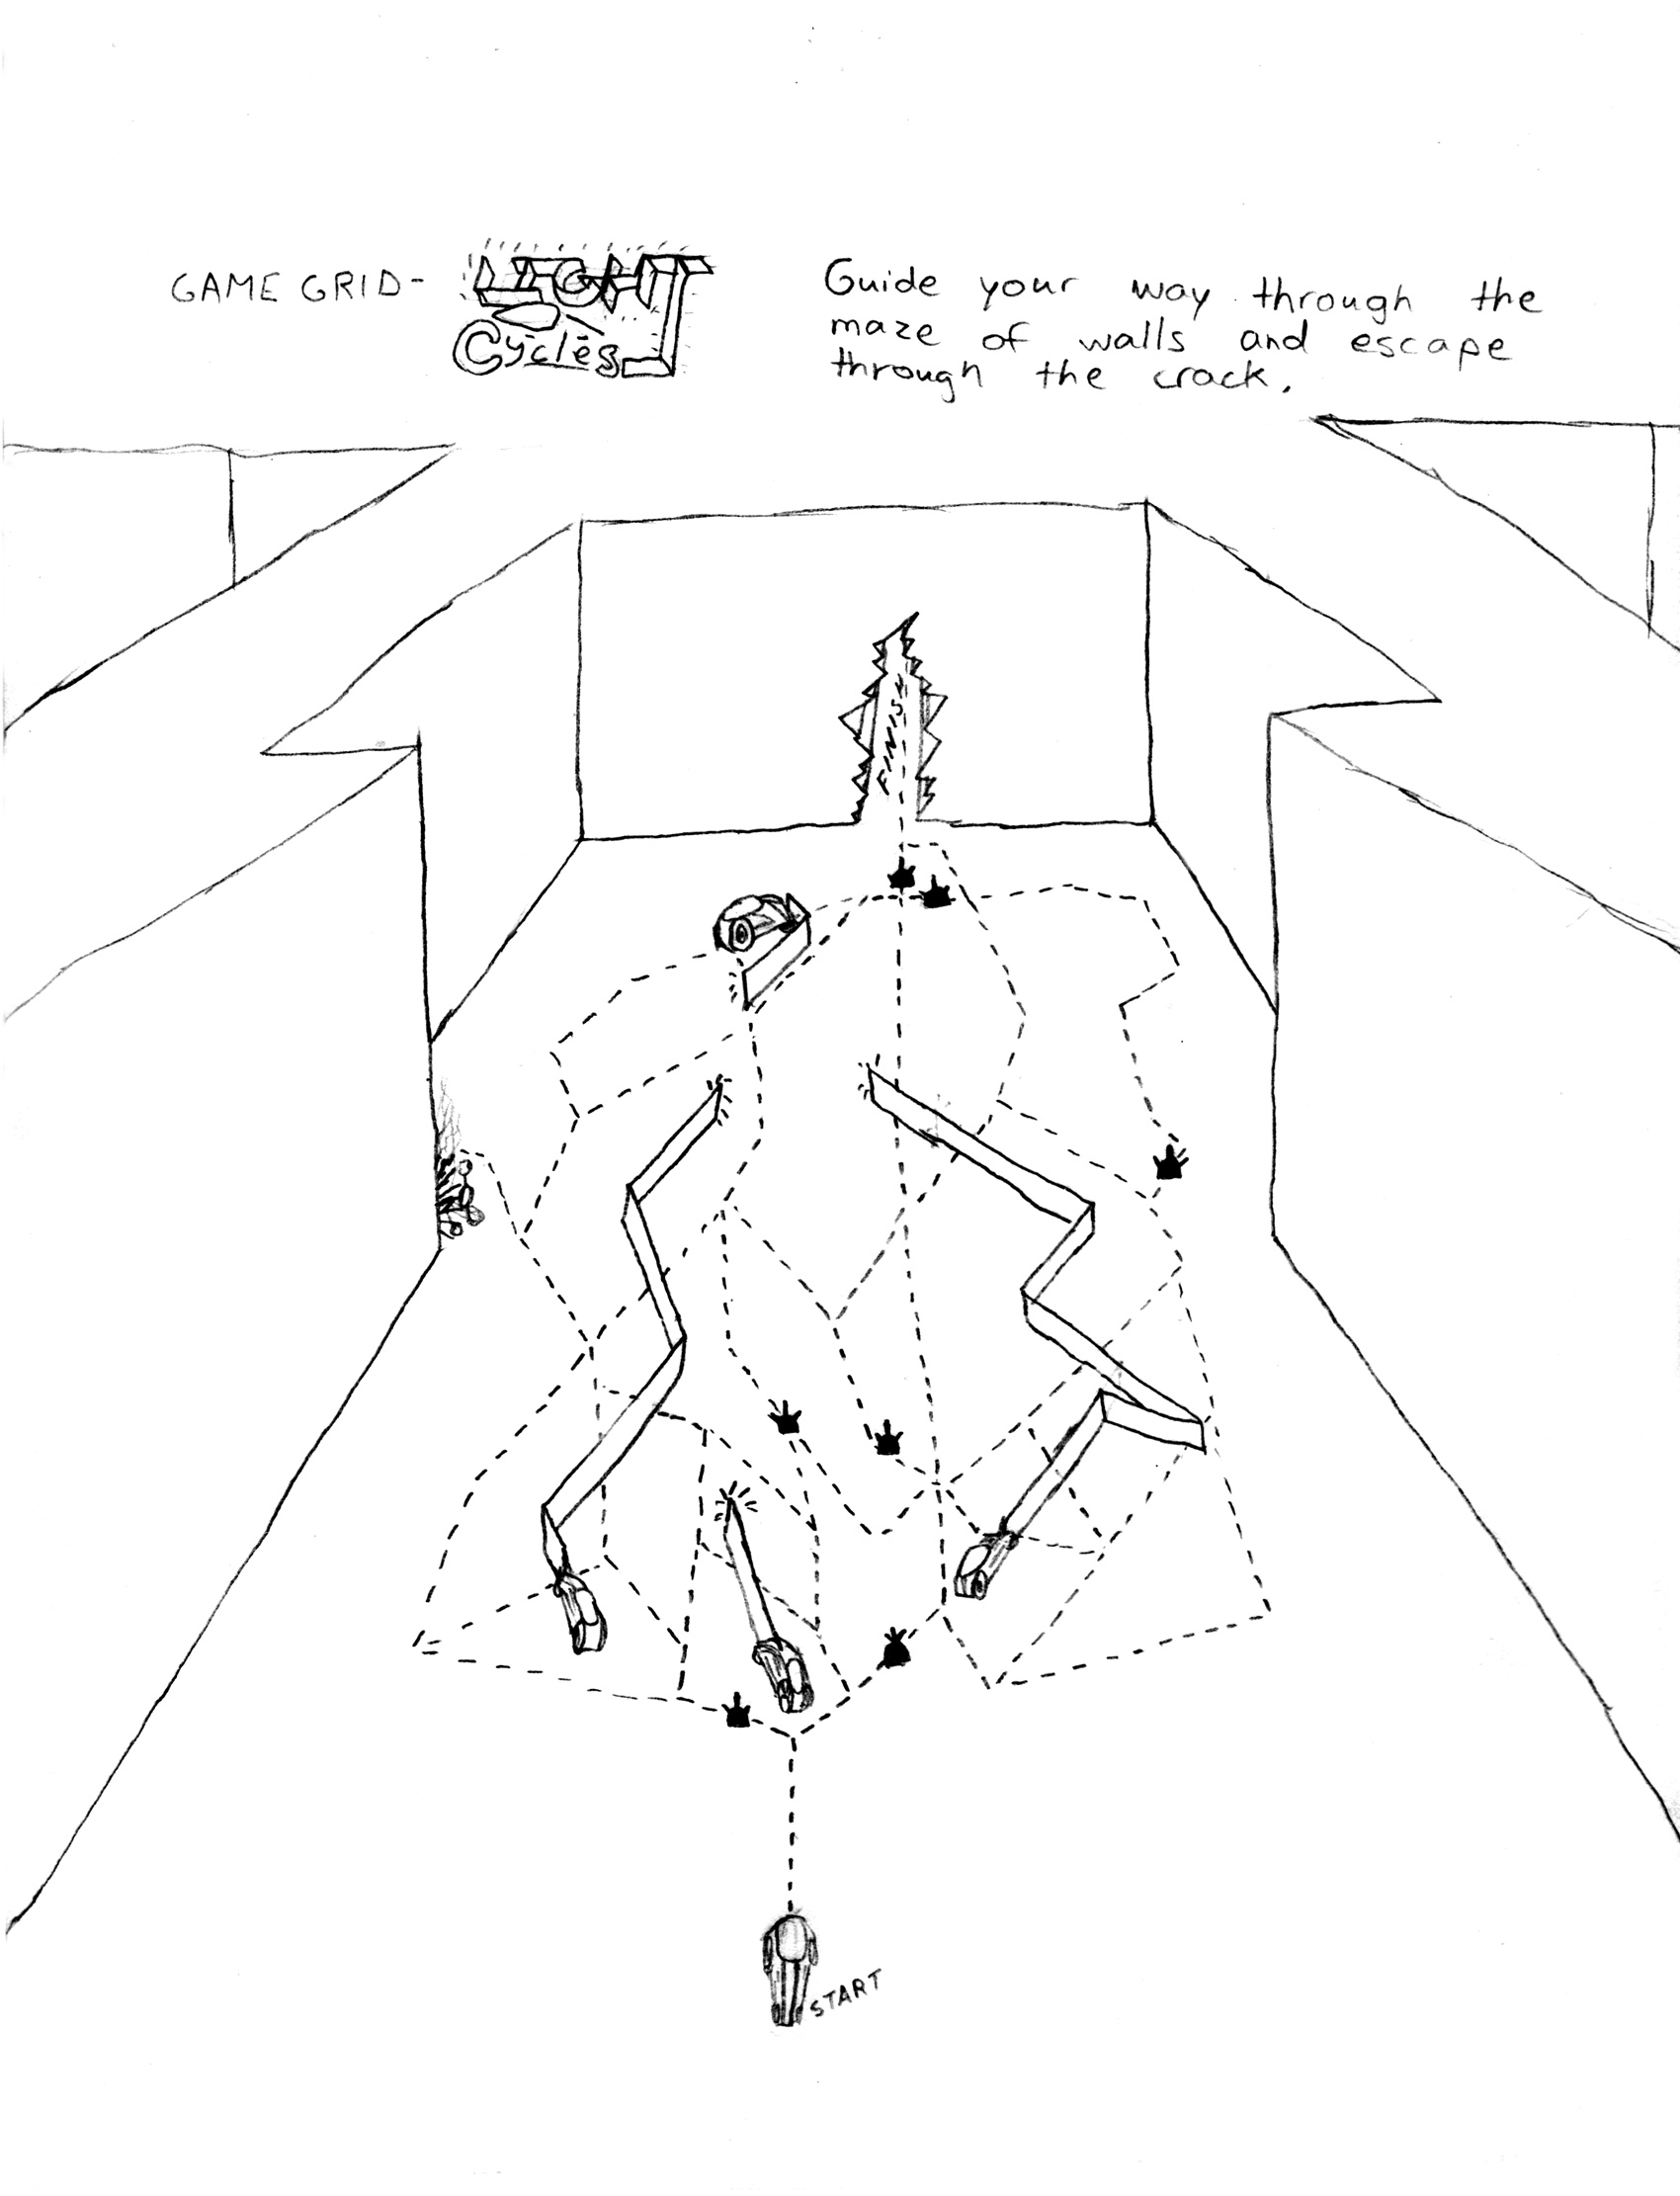 GAME GRID-
LIGHT
Cycles
Guide your way through the
maze of walls and escape
through the crack.
FINISH
START